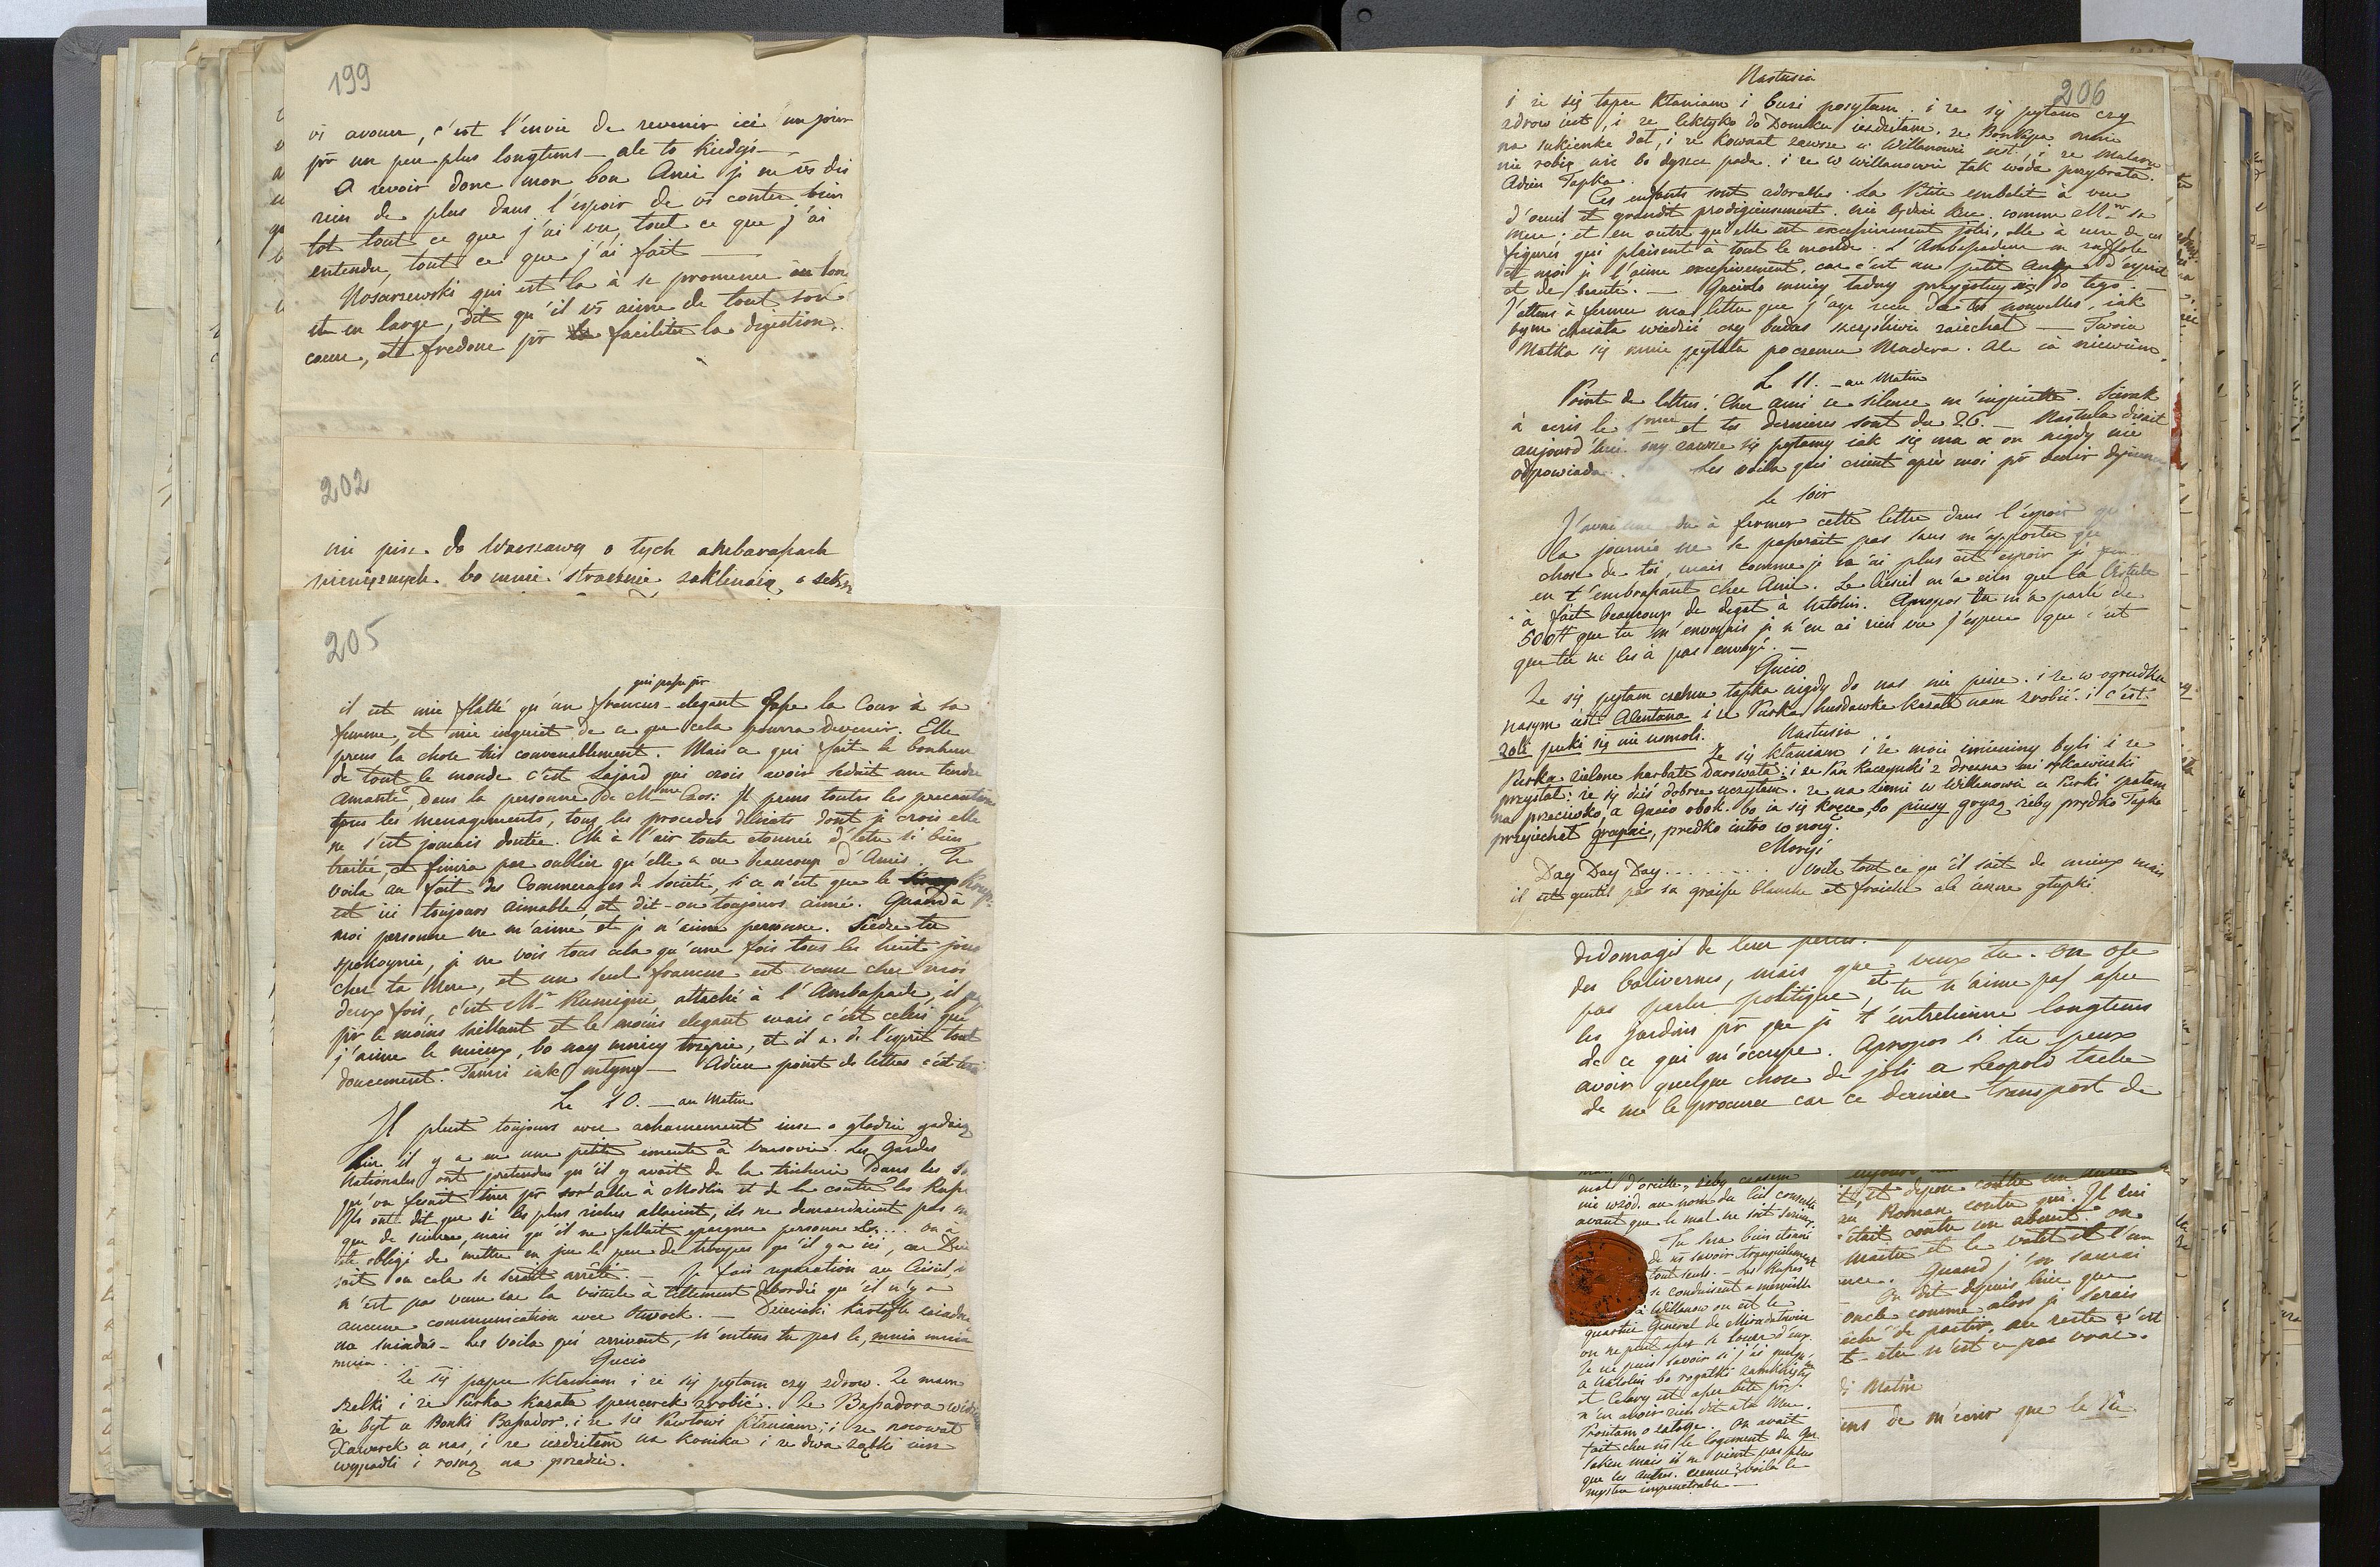 199
vs avouer, c'est l'envie de revenir ici un jour
pr un peu plus longtems — ale to kiedyś —
A revoir donc mon bon Ami je ne vs dis
rien de plus dans l'espoir de vs conter bien
tot tout ce que j'ai vu, tout ce que j'ai
entendu, tout ce que j'ai fait —
qui est la à se promener en long
et en large, dit qu'il vs aime de tout son
coeur, et fredone pr faciliter la digestion.
202
nie pisz do Warszawy o tych
bo mnie strasznie zaklinaią o sekret
205
qui passe pr
il est mie flatté qu'un francus elegant fasse la Cour à sa
femme, et mie inquiet de ce que cela pourra devenir. Elle
prens la chose très convenablement. Mais ce qui fait le bonheur
de tout le monde c'est Sajard qui crois avoir seduit une tendre
Amante, dans la personne de Mme Caos: Il prens toutes les precautions
tous les menagements, tous les procedes delicats dont je crois elle
ne s'est jamais doutée. Elle à l'air toute etonnée d'etre si bien
traitée, et finira par oublier qu'elle a eu beaucoup d'Amis. Te
voila au fait des Commerages de societé, si ce n'est que le
est ici toujours aimable et dit-on toujours aimé. Quand à
moi personne ne m'aime et je n'aime personne. Siedze tu
spokoynie, je ne vois tous cela qu'une fois tous les huit jours
chez ta Mere, et un seul francus est venu chez moi
deux fois, c'est Mr Rumigni attaché à l'Ambassade, il
pr le moins brillant et le moins elegant mais c'est celui que
j'aime le mieux, bo nay mniey trzepie, et il a de l'esprit tout
doucement. Tańci iak — Adieu point de lettres c'est
Le 10. — au Matin
Il pleut toujours avec acharnement insz o glodzie gadaią
hier il y a eu une petite emeute à Varsovie. Les Gardes
Nationales ont pretendus qu'il y avait de la tricherie dans les
qu'on fesait tirer pr sort aller à Modlin et de la contre les Russes
Ils ont dit que si les plus riches allaient, ils ne demandaient pas
que de suivre, mais qu'il ne fallait epargner personne &c... on à
été obligé de mettre en jeu le peu de troupes qu'il y a ici, et Dieu
sait ou cela se serait arrêté. — Je fais reparation au Ciesiel, il
n'est pas venu car la vistule à tellement debordé qu'il n'y a
aucune communication avec Otwock. —
na sniadas — Les voila qui arrivent, n'entens tu pas le, mnia mnia
mnia..
Gucio
Że się papce kłaniam i że się pytam czy zdrow. Że mam
szelki i że Pürka kazała spencerek zrobić. Że Bassadora
że byt u Bonki Bassador. i że się Pawłowi kłaniam; i że nocował
Xawerek u nas, i że iezdziłem na koniku i że dwa ząbki im
wypadli i rosną na przedzie.
206
Nastusia
i że się tapce kłaniam i buzi posyłam. i że się pytam czy
zdrow iest, i że lektyko do Domku iezdziłam. że Bonkapa mnie
na sukienke dał, i że Kownat zawsze w Willanowie iest, i że Malarze
nie robią nic bo dyszcz pada. i że w Willanowie tak woda przybrała.
Adieu Tapka.
Ces enfants sont adorables. La Bête embelit à vue
d'oeuil et grandit prodigieusement. nie będzie kue. comme Mme sa
mere. et en outre qu'elle est excessivement jolie, elle à une de ces
figures qui plaisent à tout le monde. L'Ambassadeur en raffole
et moi je l'aime excessivement, car c'est un petit Ange d'esprit
et de beauté. — Guciolo mniey ładny przygotuy się do tego. —
J'attens à fermer ma lettre que j'aye recu de tes nouvelles, iak
bym chciała wiedzić czy budas szczęśliwie zaiechał — Twoia
Matka się mnie pytała po czemu Madera. Ale ia niewiem.
Le 11. — au Matin
Point de lettres! Cher Ami ce silence m'inquiette. Sierak
à ecris le 1mier et tes dernieres sont du 26. — Nastula disait
aujourd'hui. my zawsze się pytamy iak się ma a on nigdy nie
odpowiada. Les voila qui crient après moi pr venir dejeuner
Le Soir
à fermer cette lettre dans l'espoir que
la journée ne se passerait pas sans m'apporter quelque
chose de toi, mais comme je n'ai plus cet espoir je
en t'embrassant cher Ami. Le Ciesiel m'a ecris que la Vistule
à fait beaucoup de degat à Natolin. Apropos tu m'a parlé de
500# que tu m'envoyais je n'en ai rien vu j'espere que c'est
que tu ne les à pas envoyé. —
Gucio
Że się pytam czemu tapka nigdy do nas nie pisze. i że w ogrudku
naszym iest Alentana i że Pürka husdawke kazała nam zrobić. i c'est.
zoli puki się nie usmoli.
Nastusia
Że się kłaniam i że moie imieniny byli i że
Pürka zielone harbate darowała; i że Pan Raczynski z Drezna mi rękawiczki
przysłał; że się dziś dobrze uczyłam. że na ziemi w Willanowie u Pürki spałam
na przeciwko, a Gucio obok. bo ia się kręce, bo piusy gryzą, żeby prędko Tapka
przyiechał prędko iutro w nocy.
Moryś
Day Day Day....... Voila tout ce qu'il sait de mieux mais
il est gentil par sa graisse blanche et fraiche ale ieszcze głupki.
dedomagé de leur pertes.
des balivernes, mais que veux tu. On ose
pas parler politique, et tu n'aime pas assez
les Jardins pr que je t'entretienne longtems
de ce qui m'occupe. Apropos si tu peux
avoir quelque chose de joli ex Leopold tache
de me le procurer car ce dernier transport de
mal d'oreille, żeby czasem
nie wzioł. au nom du Ciel consulte
avant que le mal ne soit serieux.
Tu sera bien etonné
de vs savoir tranquilement
tout seuls. — Les Russes
se conduisent a merveille
à Willanow ou est le
quartier General de Miradatowicz
on ne peut assez se louer d'eux.
Je ne puis savoir si j'ai quelq'
à Natolin bo rogatki zamknięte
et Celary est assez bete pr
n'en avoir rien dit a ta Mere.
Prositam o załoge. On avait
fait chez vs le logement de
Saken mais il ne vient pas plus
que les autres. czemu? voila le
mystere impenetrable —
et depose contre un autre
au Roman contre qui. Il lui
c'était contre un absent. on
maitre et le valet et l'un
Quand j'en saurai
On dit depuis hier que
oncle comme alors je serais
de partir. au reste c'est
t-etre n'est ce pas vrai.
Matin
de m'ecrir que le